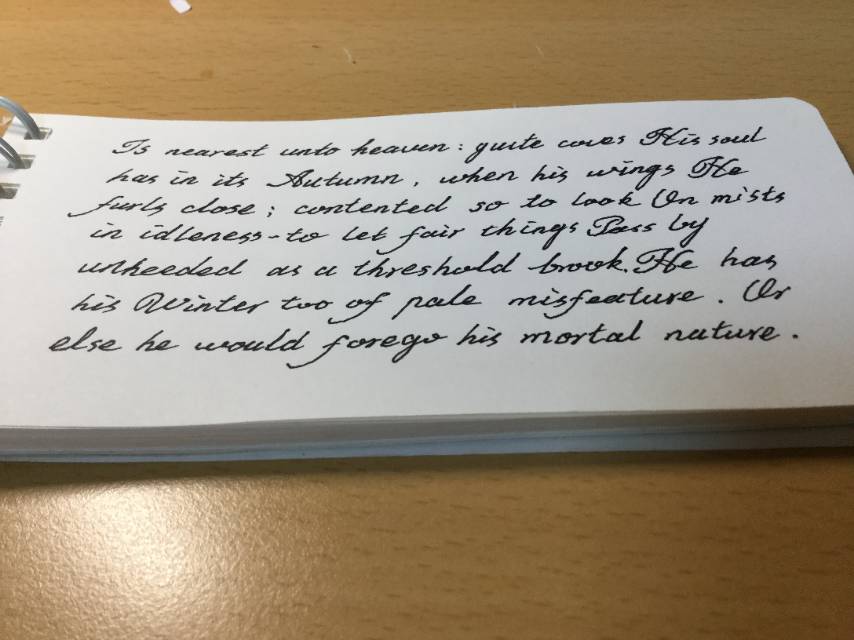 Is nearest unto heaven: quite coves His soul
has in its Autumn, when his wings He
furls close; contented so to look On mists
in idleness-to let fair things Pass by
unheeded as a threshold brook. He has
his Winter too of pale misfeature. Or
else he would forego his mortal nature.